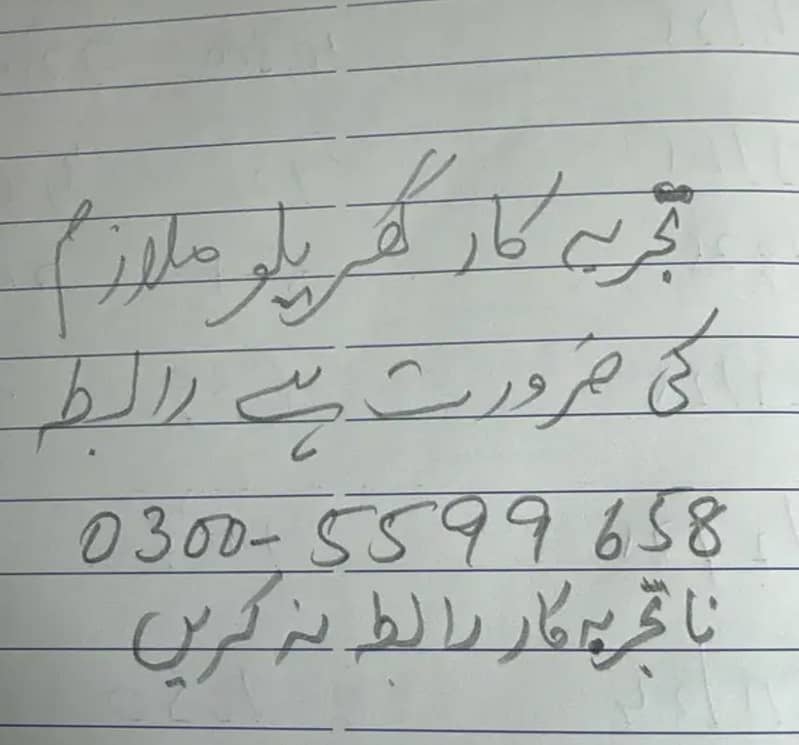 تجربہ کار گھریلو ملازم
کی ضرورت ہے رابطہ
0300-5599658
نا تجربہ کار رابطہ نہ کریں